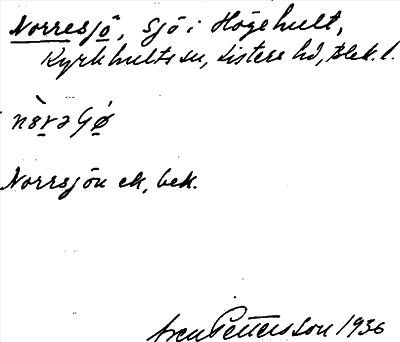 Norresjö, sjö i Högehult,
Kyrkhults sn, Listers hd, Blek. l.
Norrsjön ek, bek.
Pettersson 1936